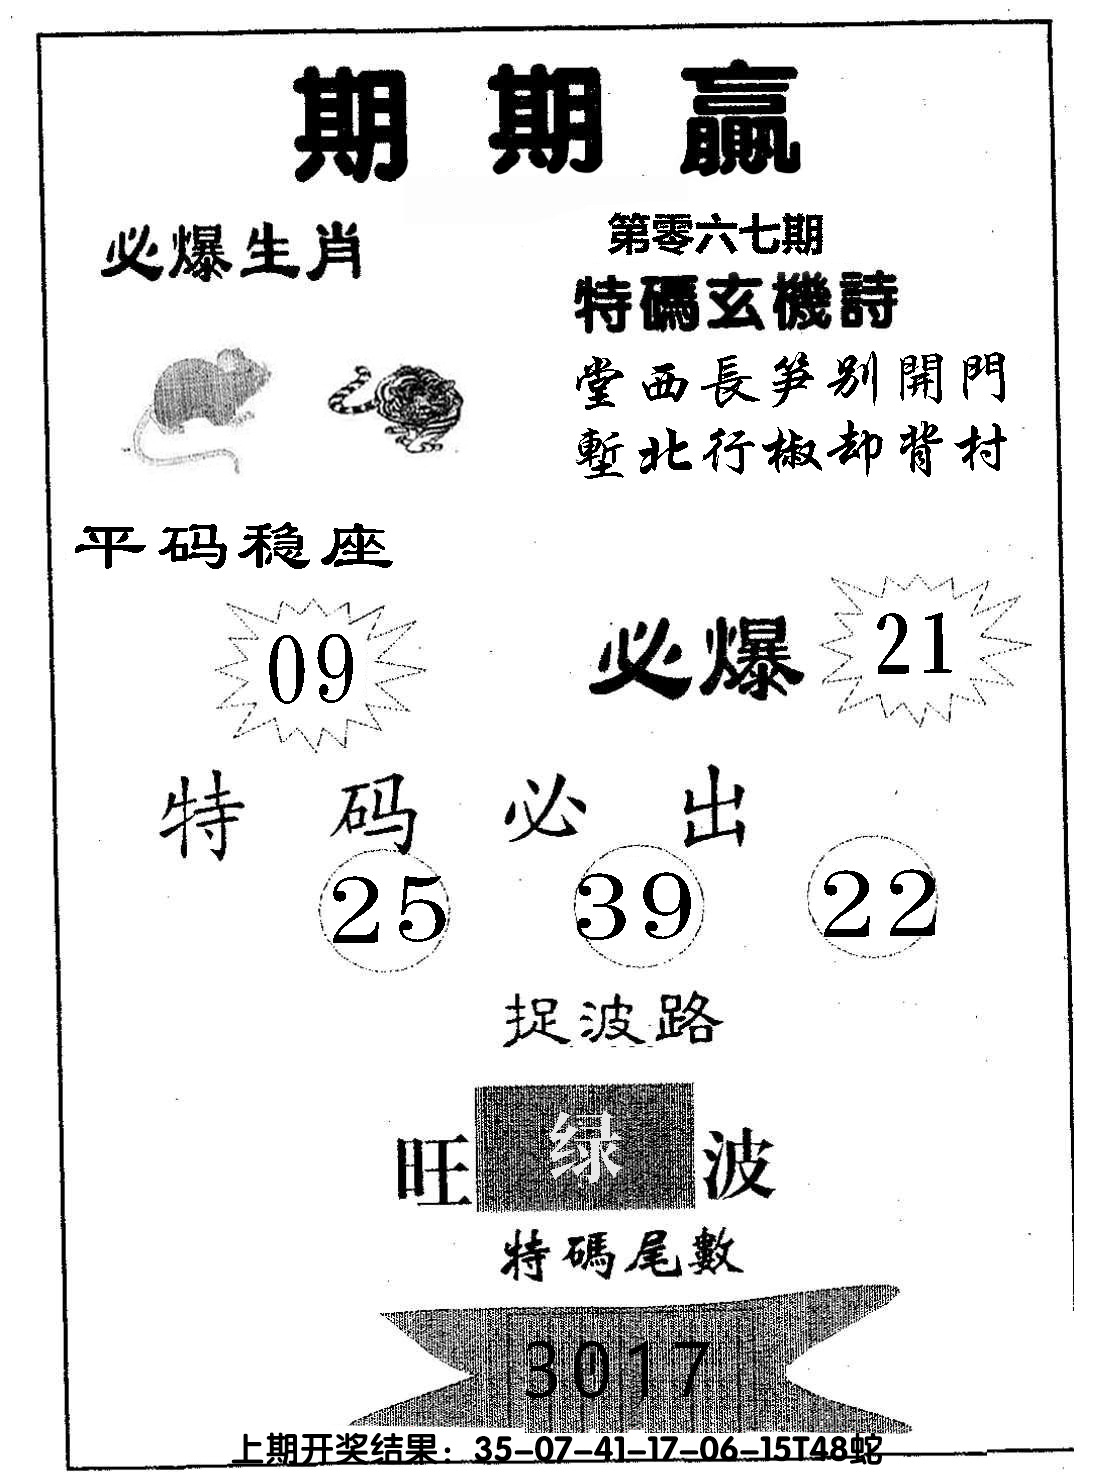 期期赢
必爆生肖
第零六七期
特碼玄機詩
堂西長笋别開門
塹北行椒却背村
平码稳座
09
必爆
21
特码必出
25 39 22
捉波路
旺绿波
特碼尾數
3017
上期开奖结果：35-07-41-17-06-15T48蛇